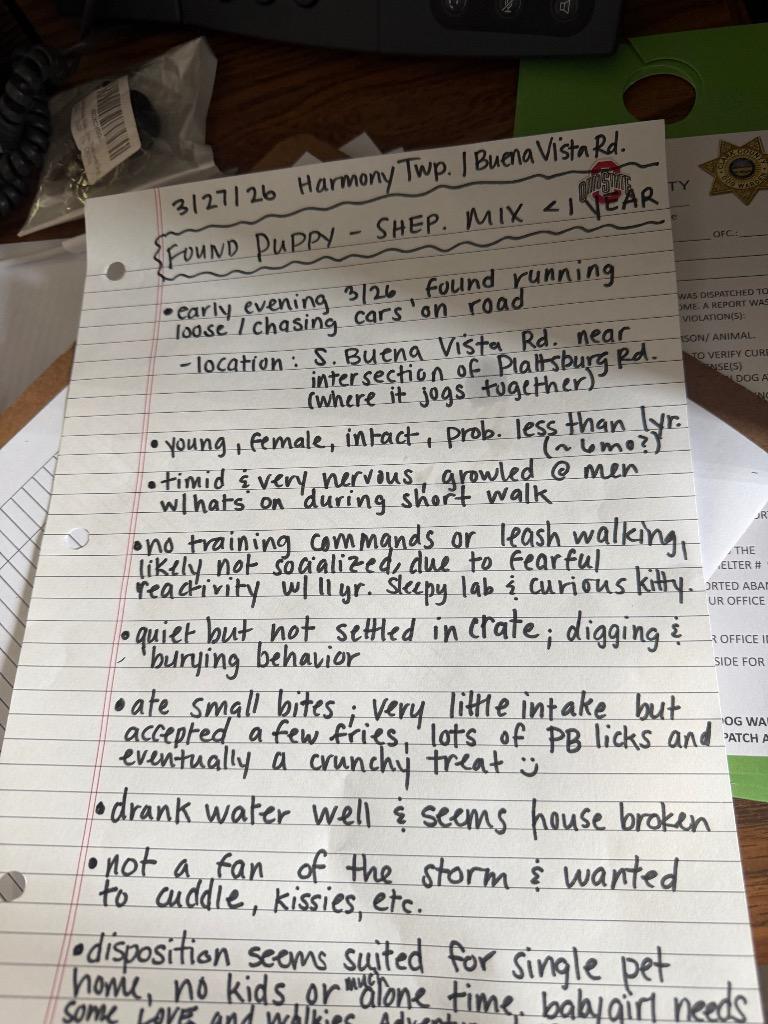 3/27/26 Harmony Twp. / Buena Vista Rd.
FOUND PUPPY - SHEP. MIX < 1 YEAR
• early evening 3/26, found running
loose / chasing cars on road
- location: S. Buena Vista Rd. near
intersection of Plattsburg Rd.
(where it jogs together)
• young, female, intact, prob. less than 1yr.
(~ 6mo?)
• timid & very nervous, growled @ men
w/hats on during short walk
• no training commands or leash walking,
likely not socialized, due to fearful
reactivity w/ 11yr. sleepy lab & curious kitty.
• quiet but not settled in crate; digging &
burying behavior
• ate small bites; very little intake but
accepted a few fries, lots of PB licks and
eventually a crunchy treat
• drank water well & seems house broken
• not a fan of the storm & wanted
to cuddle, kissies, etc.
• disposition seems suited for single pet
home, no kids or much alone time. babygirl needs
some LOVE and walkies.
TY
OFC.:
WAS DISPATCHED TO
A REPORT WAS
VIOLATION(S):
SON/ ANIMAL.
TO VERIFY
DOG
THE
ELTER #
ORTED
UR OFFICE
R OFFICE
SIDE FOR
OG
PATCH